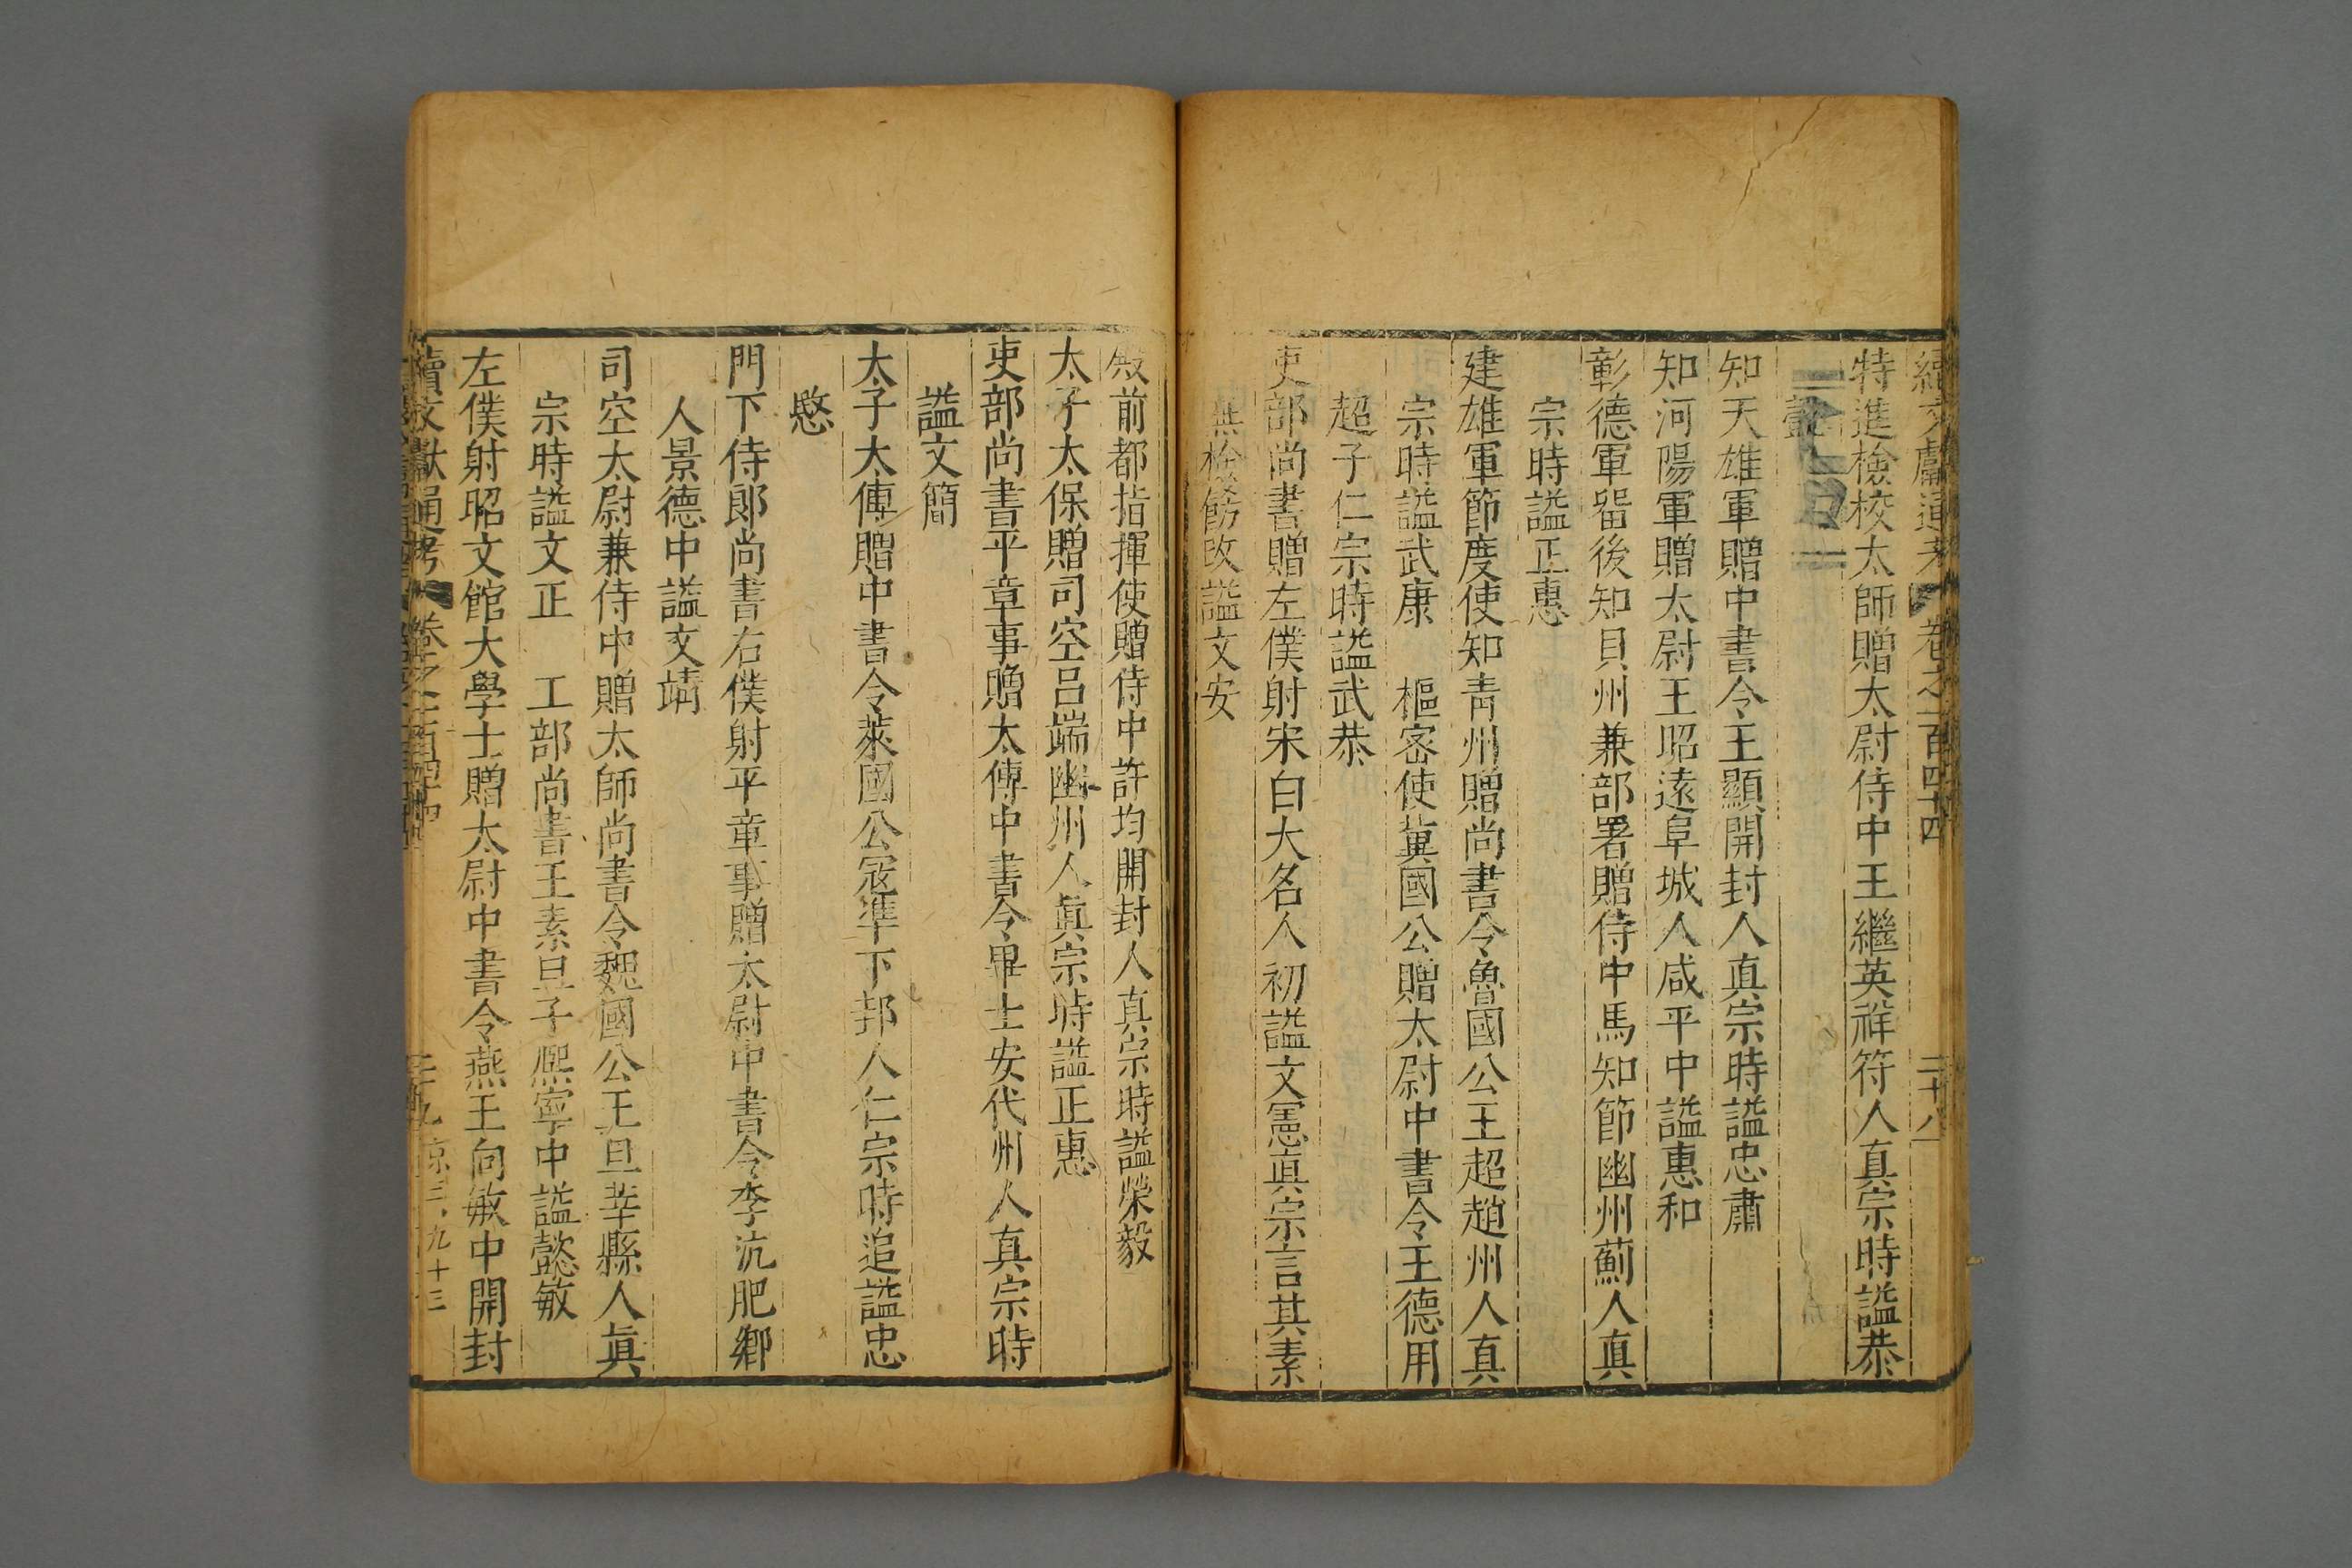 續文獻通考 卷之一百四十四 二十八
特進檢校太師贈太尉侍中王繼英祥符人真宗時謚恭
懿
知天雄軍贈中書令王顯開封人真宗時謚忠肅
知河陽軍贈太尉王昭遠阜城人咸平中謚惠和
彰德軍留後知貝州兼部署贈侍中馬知節幽州薊人真
宗時謚正惠
建雄軍節度使知青州贈尚書令魯國公王超趙州人真
宗時謚武康 樞密使冀國公贈太尉中書令王德用
超子仁宗時謚武恭
吏部尚書贈左僕射宋白大名人初謚文憲真宗言其素
無檢飭改謚文安
殿前都指揮使贈侍中許均開封人真宗時謚榮毅
太子太保贈司空呂端幽州人真宗時謚正惠
吏部尚書平章事贈太傅中書令畢士安代州人真宗時
謚文簡
太子太傅贈中書令萊國公寇準下邽人仁宗時追謚忠
愍
門下侍郎尚書右僕射平章事贈太尉中書令李沆肥鄉
人景德中謚文靖
司空太尉兼侍中贈太師尚書令魏國公王旦莘縣人真
宗時謚文正 工部尚書王素旦子熙寧中謚懿敏
左僕射昭文館大學士贈太尉中書令燕王向敏中開封
續文獻通考 卷之一百四十四 二十九 京三、九十三